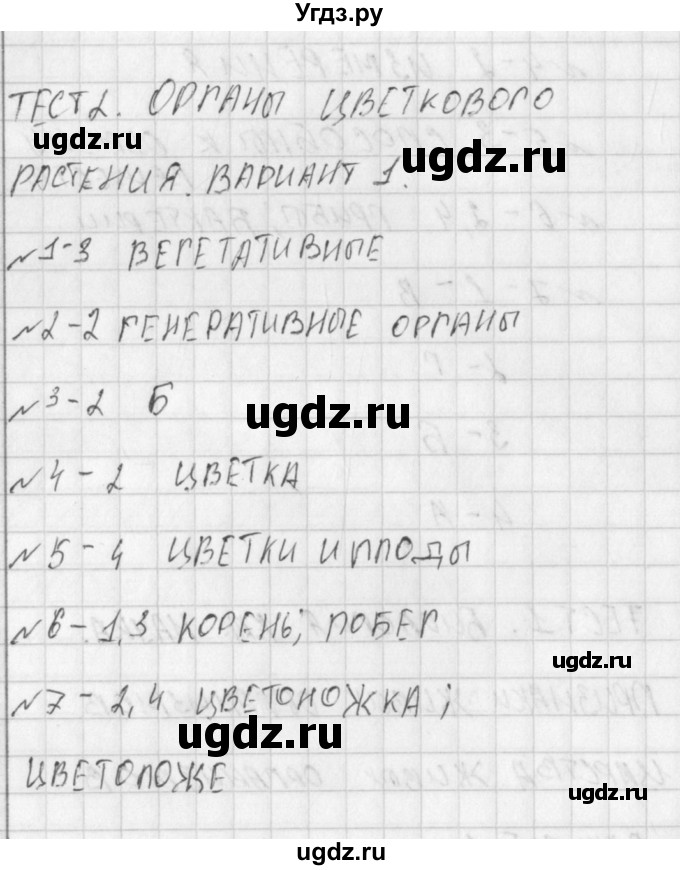 Угдз.ру
ТЕСТ 2. ОРГАНЫ ЦВЕТКОВОГО
ugdz.ru
ugdz.ru
РАСТЕНИЯ. ВАРИАНТ 1.
№1-3 ВЕГЕТАТИВНЫЕ
№2-2 ГЕНЕРАТИВНЫЕ ОРГАНЫ
№3-2 Б
ugdz.ru
№4-2 ЦВЕТКА
№5-4 ЦВЕТКИ И ПЛОДЫ
№6-1,3 КОРЕНЬ; ПОБЕГ
ugdz.ru
№7-2,4 ЦВЕТОНОЖКА;
ugdz.ru
ЦВЕТОЛОЖЕ
ugdz.ru
ugdz.ru